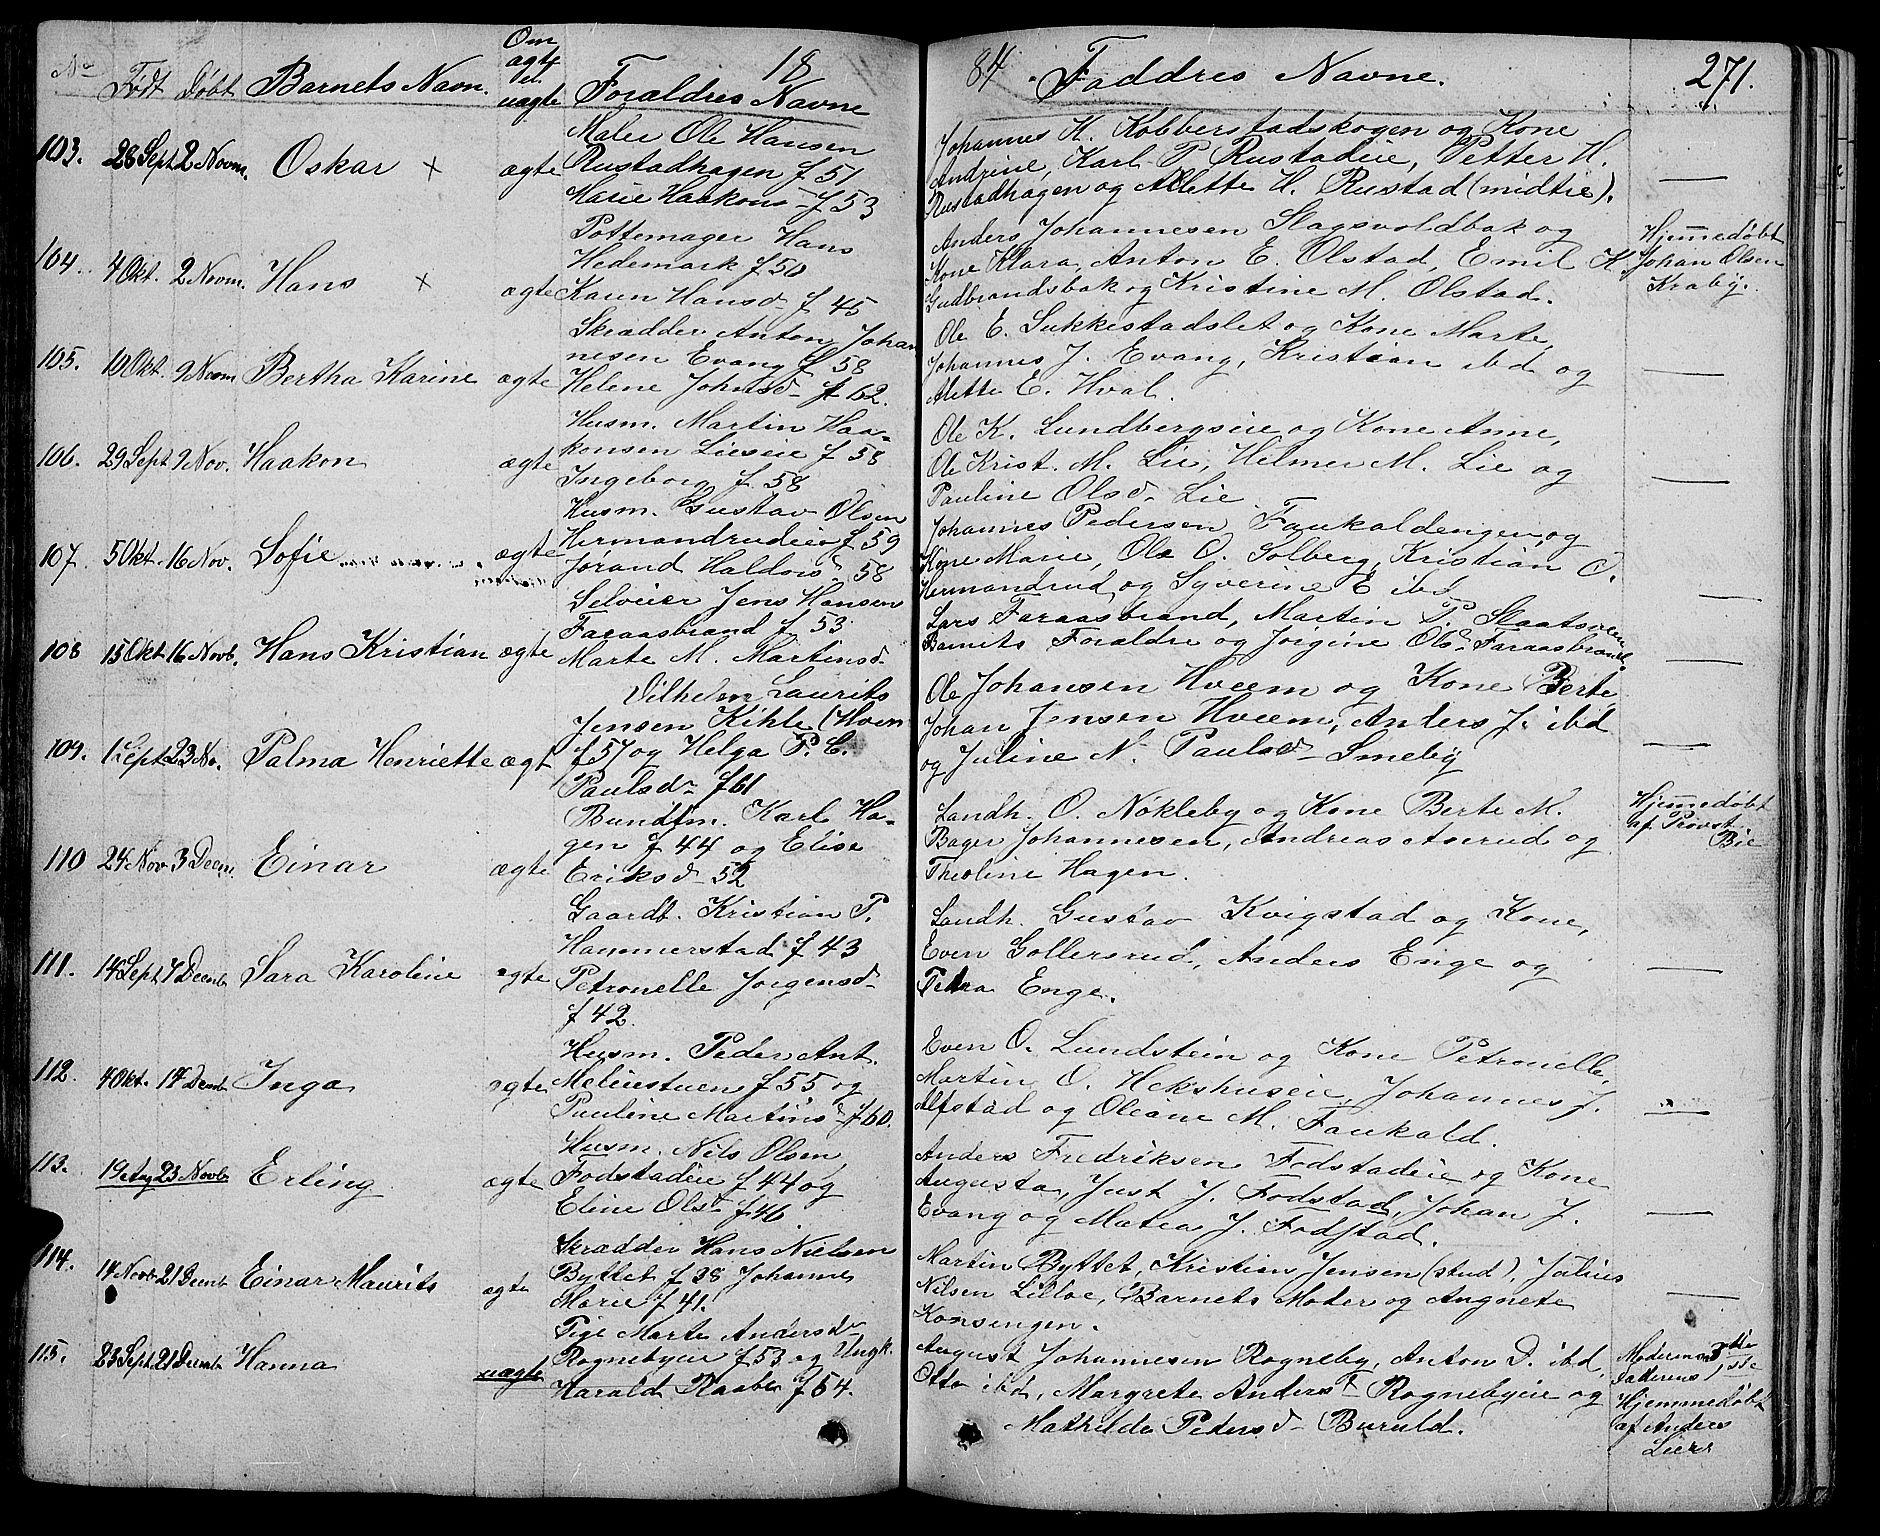 No Født Døbt Barnets Navn. Om ægte el. uægte Forældres Navne 18
84 Faddres Navne. 271.
103. 28 Sept 2 Novm. Oskar + ægte
Maler Ole Hansen
Rustadhagen f 51
Marie Haakons- f 53
Johannes H. Kobberstadskogen og Kone
Andrine, Karl P. Rustadeie, Petter H.
Rustadhagen og Alette H. Rustad (midtre).
104. 4 Okt. 2 Novm. Hans + ægte
Pottemager Hans
Hedemark f 50
Karen Hansd- f 45
Anders Johannesen Slagsvoldbak og
Kone Klara, Anton E. Olstad, Emil K.
Gudbrandsbak og Kristine M. Olstad.
Hjemmedøbt
Johan Olsen
Kraby.
105. 10 Okt. 9 Novm Bertha Karine ægte
Skrædder Anton Johan
nesen Evang f 58
Helene Johnsd- f 62.
Ole E. Sukkestadslet og Kone Marte,
Johannes J. Evang, Kristian ibd og
Alette E. Hval.
106. 29 Sept 9 Nov. Haakon ægte
Husm. Martin Haa-
konsen Lieseie f 58
Ingeborg f 58
Ole K. Lundbergseie og Kone Anne,
Ole Krist. M. Lie, Helmer M. Lie og
Pauline Olsd- Lie
107. 5 Okt. 16 Nov. Sofie ægte
Husm. Gustav Olsen
Hermandrudeie f 59
Jørand Haldorsd 58
Johannes Pedersen Faukaldengen og
Kone Marie, Ole O. Solberg, Kristian O.
Hermandrud og Syverine E ibd
108 15 Okt 16 Novb. Hans Kristian ægte
Selveier Jens Hansen
Faraasbrand f 53
Marte M. Martinsd.
Lars Faraasbrand, Martin P. Slaatsveen
Barnets Forældre og Jørgine Olsd- Faraasbrand.
109. 1 Sept 23 No. Palma Henriette ægt
Vilhelm Laurits
Jensen Kihle (Hveem
f 57 og Helga P. C.
Paulsd- f 61
Ole Johansen Hveem og Kone Berte,
Johan Jensen Hveem, Anders J. ibd
og Juline N. Paulsd- Smeby
110 24 Nov 3 Decm. Einar ægte
Bundtm. Karl Ha-
gen f 44 og Elise
Eriksd- 52
Landh. O. Nøkleby og Kone Berte M.
Bager Johannesen, Andreas Aserud og
Theoline Hagen.
Hjemmedøbt
af Provst
Bie
111. 14 Sept 7 Decmb Sara Karoline ægte
Gaardb. Kristian P.
Hammerstad f 43
Petronelle Jørgensd-
f 42.
Landh. Gustav Kvigstad og Kone,
Even Gollersrud, Anders Enge og
Petra Enge.
112. 4 Okt. 14 Demb Inga ægte
Husm. Peder Ant.
Meliestuen f 55 og
Pauline Martinsd- f 60.
Even O. Lundstein og Kone Petronelle,
Martin O. Hekshuseie, Johannes J.
Alfstad og Oleane M. Faukald.
113. 19 Aug 23 Novb. Erling ægte
Husm. Nils Olsen
Fodstadeie f 44 og
Eline Olsd f 46
Anders Fredriksen Fodstadeie og Kone
Augusta, Just J. Fodstad, Johan J.
Evang og Matea J. Fodstad.
114. 14 Novb. 21 Decmb Einar Maurits ægte
Skrædder Hans Nielsen
Byttet f 38 Johanne
Marie f 41.
Martin Byttet, Kristian Jensen (stud), Julius
Nilsen Lilloe, Barnets Moder og Angnete
Konsengen.
115. 23 Sept 21 Decmb Hanna uægte
Pige Marte Andersd-
Rognebyeie f 53 og Ungk.
Harald Raaber f 54.
August Johannesen Rogneby, Anton D. ibd,
Otto ibd, Margrete Andersd Rognebyeie og
Mathilde Pedersd- Buruld.
Moderens
Faderens
Hjemmedøbt
af Anders
Lier